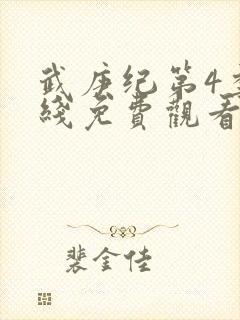 武庚纪第4季
綫免費觀看
裴金佳